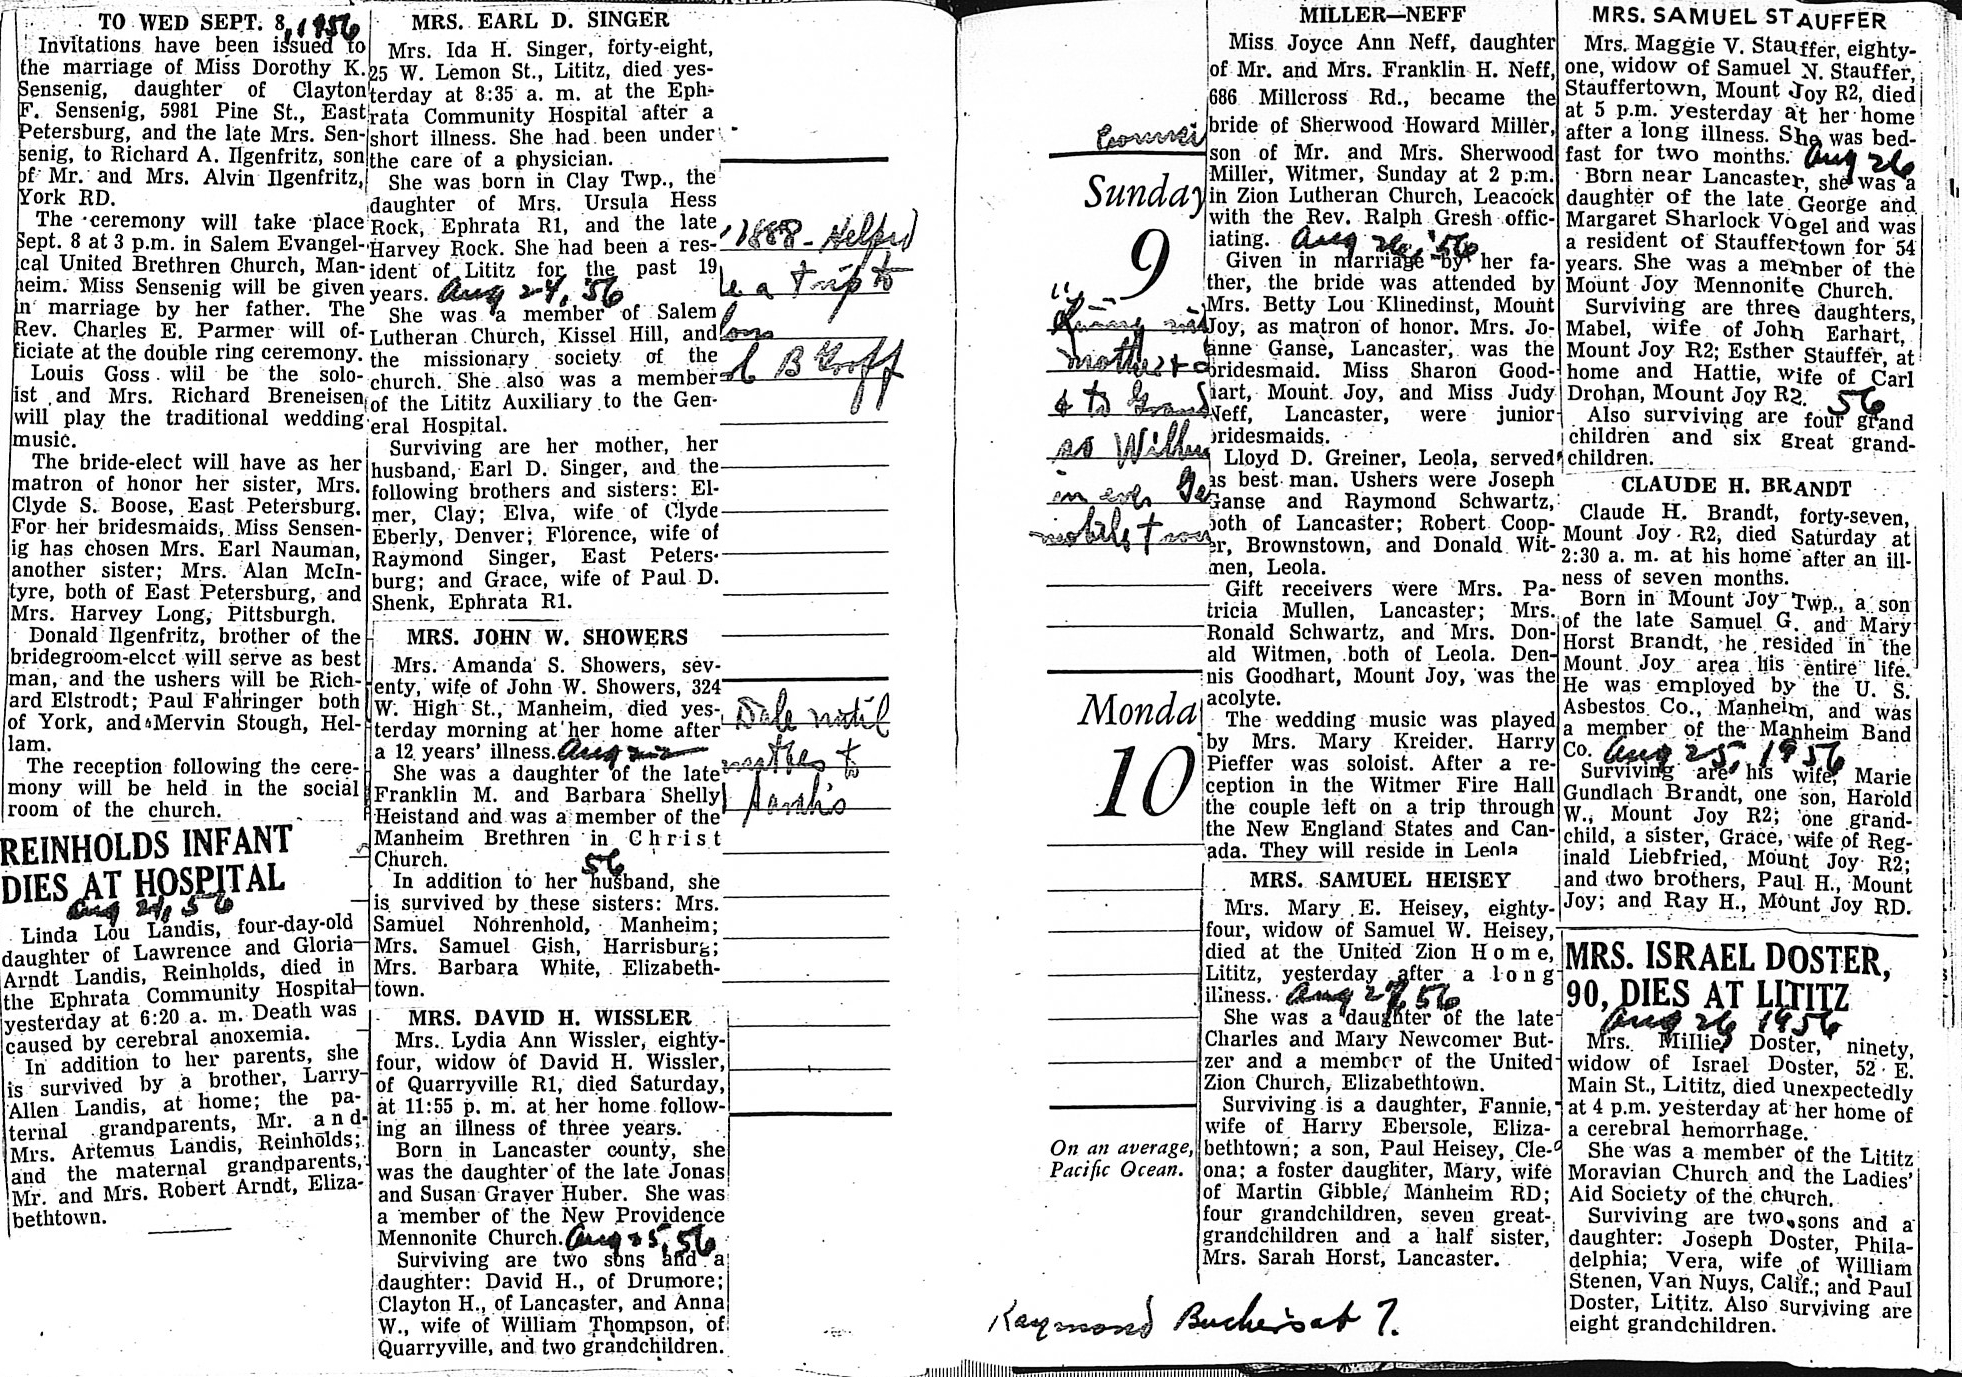 TO WED SEPT. 8, 1956
Invitations have been issued to
the marriage of Miss Dorothy K.
Sensenig, daughter of Clayton
F. Sensenig, 5981 Pine St., East
Petersburg, and the late Mrs. Sen-
senig, to Richard A. Ilgenfritz, son
of Mr. and Mrs. Alvin Ilgenfritz,
York RD.
The ceremony will take place
Sept. 8 at 3 p.m. in Salem Evangel-
ical United Brethren Church, Man-
heim. Miss Sensenig will be given
in marriage by her father. The
Rev. Charles E. Parmer will of-
ficiate at the double ring ceremony.
Louis Goss wlil be the solo-
ist and Mrs. Richard Breneisen
will play the traditional wedding
music.
The bride-elect will have as her
matron of honor her sister, Mrs.
Clyde S. Boose, East Petersburg.
For her bridesmaids, Miss Sensen-
ig has chosen Mrs. Earl Nauman,
another sister; Mrs. Alan McIn-
tyre, both of East Petersburg, and
Mrs. Harvey Long, Pittsburgh.
Donald Ilgenfritz, brother of the
bridegroom-elect will serve as best
man, and the ushers will be Rich-
ard Elstrodt; Paul Fahringer both
of York, and Mervin Stough, Hel-
lam.
The reception following the cere-
mony will be held in the social
room of the church.
REINHOLDS INFANT
DIES AT HOSPITAL
Aug 24, 56
Linda Lou Landis, four-day-old
daughter of Lawrence and Gloria
Arndt Landis, Reinholds, died in
the Ephrata Community Hospital
yesterday at 6:20 a. m. Death was
caused by cerebral anoxemia.
In addition to her parents, she
is survived by a brother, Larry
Allen Landis, at home; the pa-
ternal grandparents, Mr. and
Mrs. Artemus Landis, Reinholds;
and the maternal grandparents,
Mr. and Mrs. Robert Arndt, Eliza-
bethtown.
MRS. EARL D. SINGER
Mrs. Ida H. Singer, forty-eight,
25 W. Lemon St., Lititz, died yes-
terday at 8:35 a. m. at the Eph-
rata Community Hospital after a
short illness. She had been under
the care of a physician.
She was born in Clay Twp., the
daughter of Mrs. Ursula Hess
Rock, Ephrata R1, and the late
Harvey Rock. She had been a res-
ident of Lititz for the past 19
years. Aug 24, '56
She was a member of Salem
Lutheran Church, Kissel Hill, and
the missionary society of the
church. She also was a member
of the Lititz Auxiliary to the Gen-
eral Hospital.
Surviving are her mother, her
husband, Earl D. Singer, and the
following brothers and sisters: El-
mer, Clay; Elva, wife of Clyde
Eberly, Denver; Florence, wife of
Raymond Singer, East Peters-
burg; and Grace, wife of Paul D.
Shenk, Ephrata R1.
MRS. JOHN W. SHOWERS
Mrs. Amanda S. Showers, sev-
enty, wife of John W. Showers, 324
W. High St., Manheim, died yes-
terday morning at her home after
a 12 years' illness. Aug 22
She was a daughter of the late
Franklin M. and Barbara Shelly
Heistand and was a member of the
Manheim Brethren in Christ
Church. 56
In addition to her husband, she
is survived by these sisters: Mrs.
Samuel Nohrenhold, Manheim;
Mrs. Samuel Gish, Harrisburg;
Mrs. Barbara White, Elizabeth-
town.
MRS. DAVID H. WISSLER
Mrs. Lydia Ann Wissler, eighty-
four, widow of David H. Wissler,
of Quarryville R1, died Saturday,
at 11:55 p. m. at her home follow-
ing an illness of three years.
Born in Lancaster county, she
was the daughter of the late Jonas
and Susan Graver Huber. She was
a member of the New Providence
Mennonite Church. Aug 25, 56
Surviving are two sons and a
daughter: David H., of Drumore;
Clayton H., of Lancaster, and Anna
W., wife of William Thompson, of
Quarryville, and two grandchildren.
1888 - Helped
a trip to
B Groff
Dale until
mother to
Counci
Sunday
9
Living
mother &
& to Grand
so Wilbu
in eve
Monda
10
On an average,
Pacific Ocean.
Raymond Bucher's at 7.
MILLER—NEFF
Miss Joyce Ann Neff, daughter
of Mr. and Mrs. Franklin H. Neff,
686 Millcross Rd., became the
bride of Sherwood Howard Miller,
son of Mr. and Mrs. Sherwood
Miller, Witmer, Sunday at 2 p.m.
in Zion Lutheran Church, Leacock
with the Rev. Ralph Gresh offic-
iating. Aug 26, '56
Given in marriage by her fa-
ther, the bride was attended by
Mrs. Betty Lou Klinedinst, Mount
Joy, as matron of honor. Mrs. Jo-
anne Ganse, Lancaster, was the
bridesmaid. Miss Sharon Good-
hart, Mount Joy, and Miss Judy
Neff, Lancaster, were junior
bridesmaids.
Lloyd D. Greiner, Leola, served
as best man. Ushers were Joseph
Ganse and Raymond Schwartz,
both of Lancaster; Robert Coop-
er, Brownstown, and Donald Wit-
men, Leola.
Gift receivers were Mrs. Pa-
tricia Mullen, Lancaster; Mrs.
Ronald Schwartz, and Mrs. Don-
ald Witmen, both of Leola. Den-
nis Goodhart, Mount Joy, was the
acolyte.
The wedding music was played
by Mrs. Mary Kreider. Harry
Pieffer was soloist. After a re-
ception in the Witmer Fire Hall
the couple left on a trip through
the New England States and Can-
ada. They will reside in Leola
MRS. SAMUEL HEISEY
Mrs. Mary E. Heisey, eighty-
four, widow of Samuel W. Heisey,
died at the United Zion Home,
Lititz, yesterday after a long
illness. Aug 27, 56
She was a daughter of the late
Charles and Mary Newcomer But-
zer and a member of the United
Zion Church, Elizabethtown.
Surviving is a daughter, Fannie,
wife of Harry Ebersole, Eliza-
bethtown; a son, Paul Heisey, Cle-
ona; a foster daughter, Mary, wife
of Martin Gibble, Manheim RD;
four grandchildren, seven great-
grandchildren and a half sister,
Mrs. Sarah Horst, Lancaster.
MRS. SAMUEL STAUFFER
Mrs. Maggie V. Stauffer, eighty-
one, widow of Samuel N. Stauffer,
Stauffertown, Mount Joy R2, died
at 5 p.m. yesterday at her home
after a long illness. She was bed-
fast for two months. Aug 26
Born near Lancaster, she was a
daughter of the late George and
Margaret Sharlock Vogel and was
a resident of Stauffertown for 54
years. She was a member of the
Mount Joy Mennonite Church.
Surviving are three daughters,
Mabel, wife of John Earhart,
Mount Joy R2; Esther Stauffer, at
home and Hattie, wife of Carl
Drohan, Mount Joy R2. 56
Also surviving are four grand
children and six great grand-
children.
CLAUDE H. BRANDT
Claude H. Brandt, forty-seven,
Mount Joy R2, died Saturday at
2:30 a. m. at his home after an ill-
ness of seven months.
Born in Mount Joy Twp., a son
of the late Samuel G. and Mary
Horst Brandt, he resided in the
Mount Joy area his entire life.
He was employed by the U. S.
Asbestos Co., Manheim, and was
a member of the Manheim Band
Co. Aug 25, 1956
Surviving are his wife, Marie
Gundlach Brandt, one son, Harold
W., Mount Joy R2; one grand-
child, a sister, Grace, wife of Reg-
inald Liebfried, Mount Joy R2;
and two brothers, Paul H., Mount
Joy; and Ray H., Mount Joy RD.
MRS. ISRAEL DOSTER,
90, DIES AT LITITZ
Aug 26 1956
Mrs. Millie Doster, ninety,
widow of Israel Doster, 52 E.
Main St., Lititz, died unexpectedly
at 4 p.m. yesterday at her home of
a cerebral hemorrhage.
She was a member of the Lititz
Moravian Church and the Ladies'
Aid Society of the church.
Surviving are two sons and a
daughter: Joseph Doster, Phila-
delphia; Vera, wife of William
Stenen, Van Nuys, Calif.; and Paul
Doster, Lititz. Also surviving are
eight grandchildren.